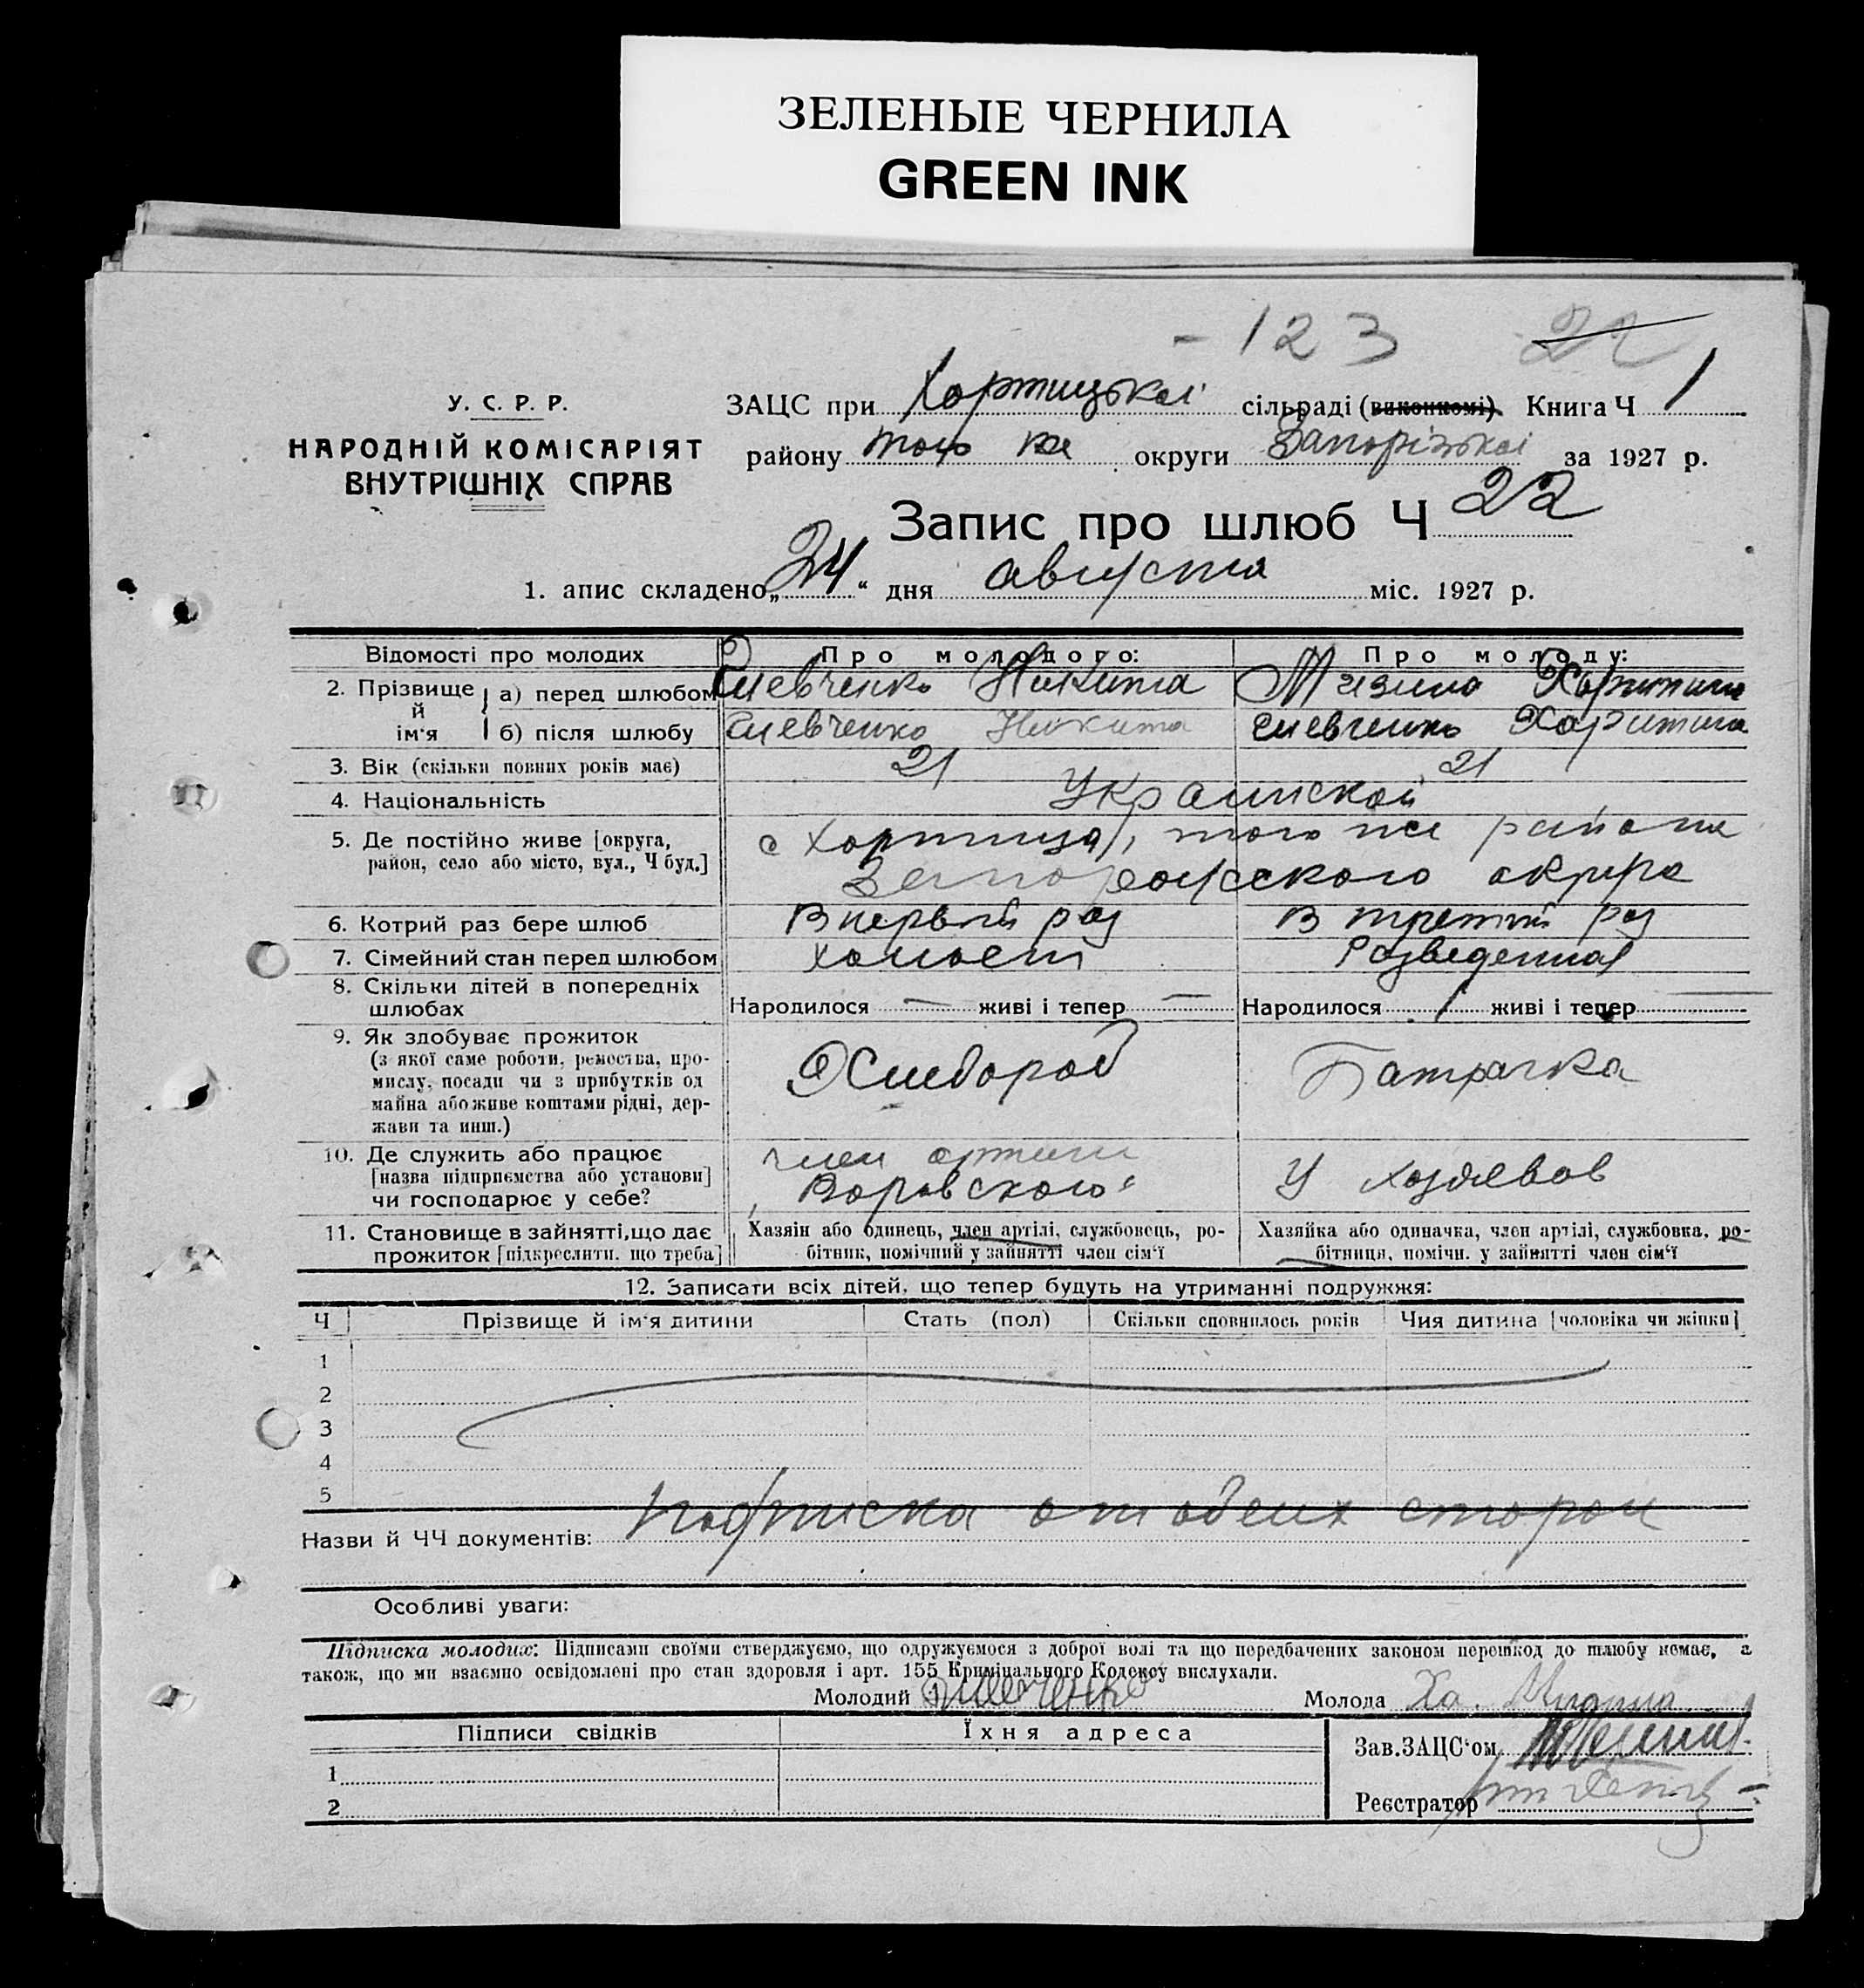 ЗЕЛЕНЫЕ ЧЕРНИЛА
GREEN INK
- 123 22
У. С. Р. Р.
НАРОДНІЙ КОМІСАРІЯТ
ВНУТРІШНІХ СПРАВ
ЗАЦС при Хортицькоі сільраді (виконкомі). Книга Ч 1
району того же округи Запорізькоі за 1927 р.
Запис про шлюб Ч 22
1. апис складено „24“ дня августа міс. 1927 р.
Відомості про молодих Про молодого: Про молоду:
2. Прізвище й ім'я а) перед шлюбом Шевченко Никита Мизина Харитина
б) після шлюбу Шевченко Никита Шевченко Харитина
3. Вік (скільки повних років має) 21 21
4. Національність Украинской
5. Де постійно живе [округа, район, село або місто, вул., Ч буд.] с Хортица, того же района
Запорожского округа
6. Котрий раз бере шлюб В первый раз В третий раз
7. Сімейний стан перед шлюбом холост Разведенная
8. Скільки дітей в попередніх шлюбах Народилося — живі і тепер — Народилося 1 живі і тепер —
9. Як здобуває прожиток
(з якої саме роботи, ремества, про-
мислу, посади чи з прибутків од
майна або живе коштами рідні, дер-
жави та инш.)
Хлебороб Батрачка
10. Де служить або працює
[назва підприємства або установи]
чи господарює у себе?
член артели
„Воровского“ У хозяевов
11. Становище в зайнятті, що дає
прожиток [підкреслити. що треба]
Хазяін або одинець, член артілі, службовець, ро-
бітник, помічний у зайнятті член сім'ї
Хазяйка або одиначка, член артілі, службовка, ро-
бітниця, помічн. у зайнятті член сім'ї
12. Записати всіх дітей, що тепер будуть на утриманні подружжя:
Ч Прізвище й ім'я дитини Стать (пол) Скільки сповнилось років Чия дитина [чоловіка чи жінки]
1
2
3
4
5
Назви й ЧЧ документів: Подписка от обеих сторон
Особливі уваги:
Підписка молодих: Підписами своїми стверджуємо, що одружуємося з доброї волі та що передбачених законом перешкод до шлюбу немає, а
також, що ми взаємно освідомлені про стан здоровля і арт. 155 Кримінального Кодексу вислухали.
Молодий Шевченко Молода Ха. Мизина
Підписи свідків Їхня адреса
Зав. ЗАЦС'ом
1
Реєстратор
2